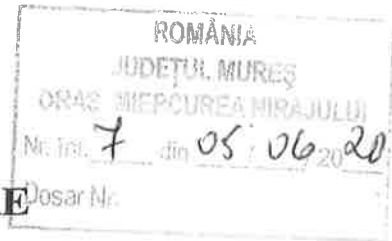 ROMÂNIA
JUDEȚUL MUREȘ
ORAȘ MIERCUREA NIRAJULUI
Nr. Int. 7 din 05 / 06 2020
E Dosar Nr.